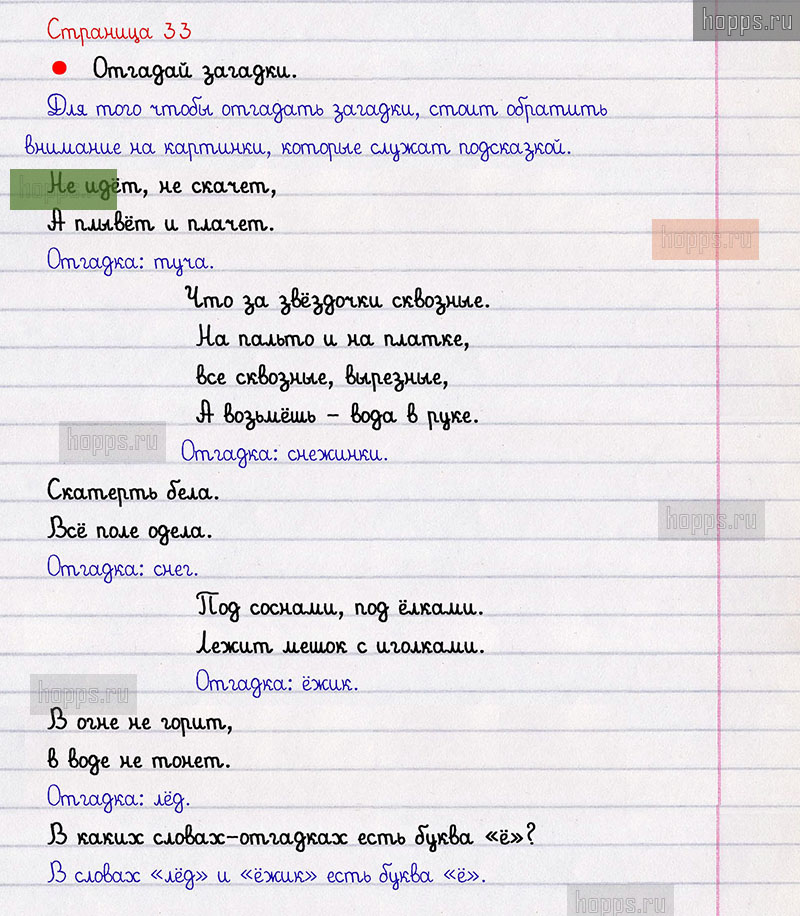 hopps.ru
Страница 33
Отгадай загадки.
Для того чтобы отгадать загадки, стоит обратить
внимание на картинки, которые служат подсказкой.
hopps.ru
Не идёт, не скачет,
А плывёт и плачет.
hopps.ru
Отгадка: туча.
Что за звёздочки сквозные.
На пальто и на платке,
все сквозные, вырезные,
А возьмёшь – вода в руке.
hopps.ru
Отгадка: снежинки.
Скатерть бела.
hopps.ru
Всё поле одела.
Отгадка: снег.
Под соснами, под ёлками.
Лежит мешок с иголками.
Отгадка: ёжик.
hopps.ru
В огне не горит,
в воде не тонет.
Отгадка: лёд.
В каких словах-отгадках есть буква «ё»?
В словах «лёд» и «ёжик» есть буква «ё».
hopps.ru